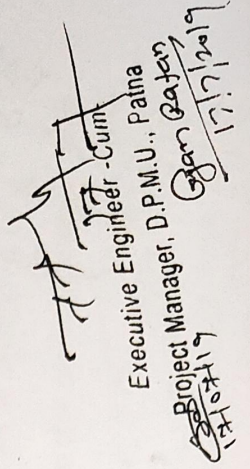 Executive Engineer -Cum
Project Manager, D.P.M.U., Patna
Gyan Ratan
17/7/2019
17/07/19